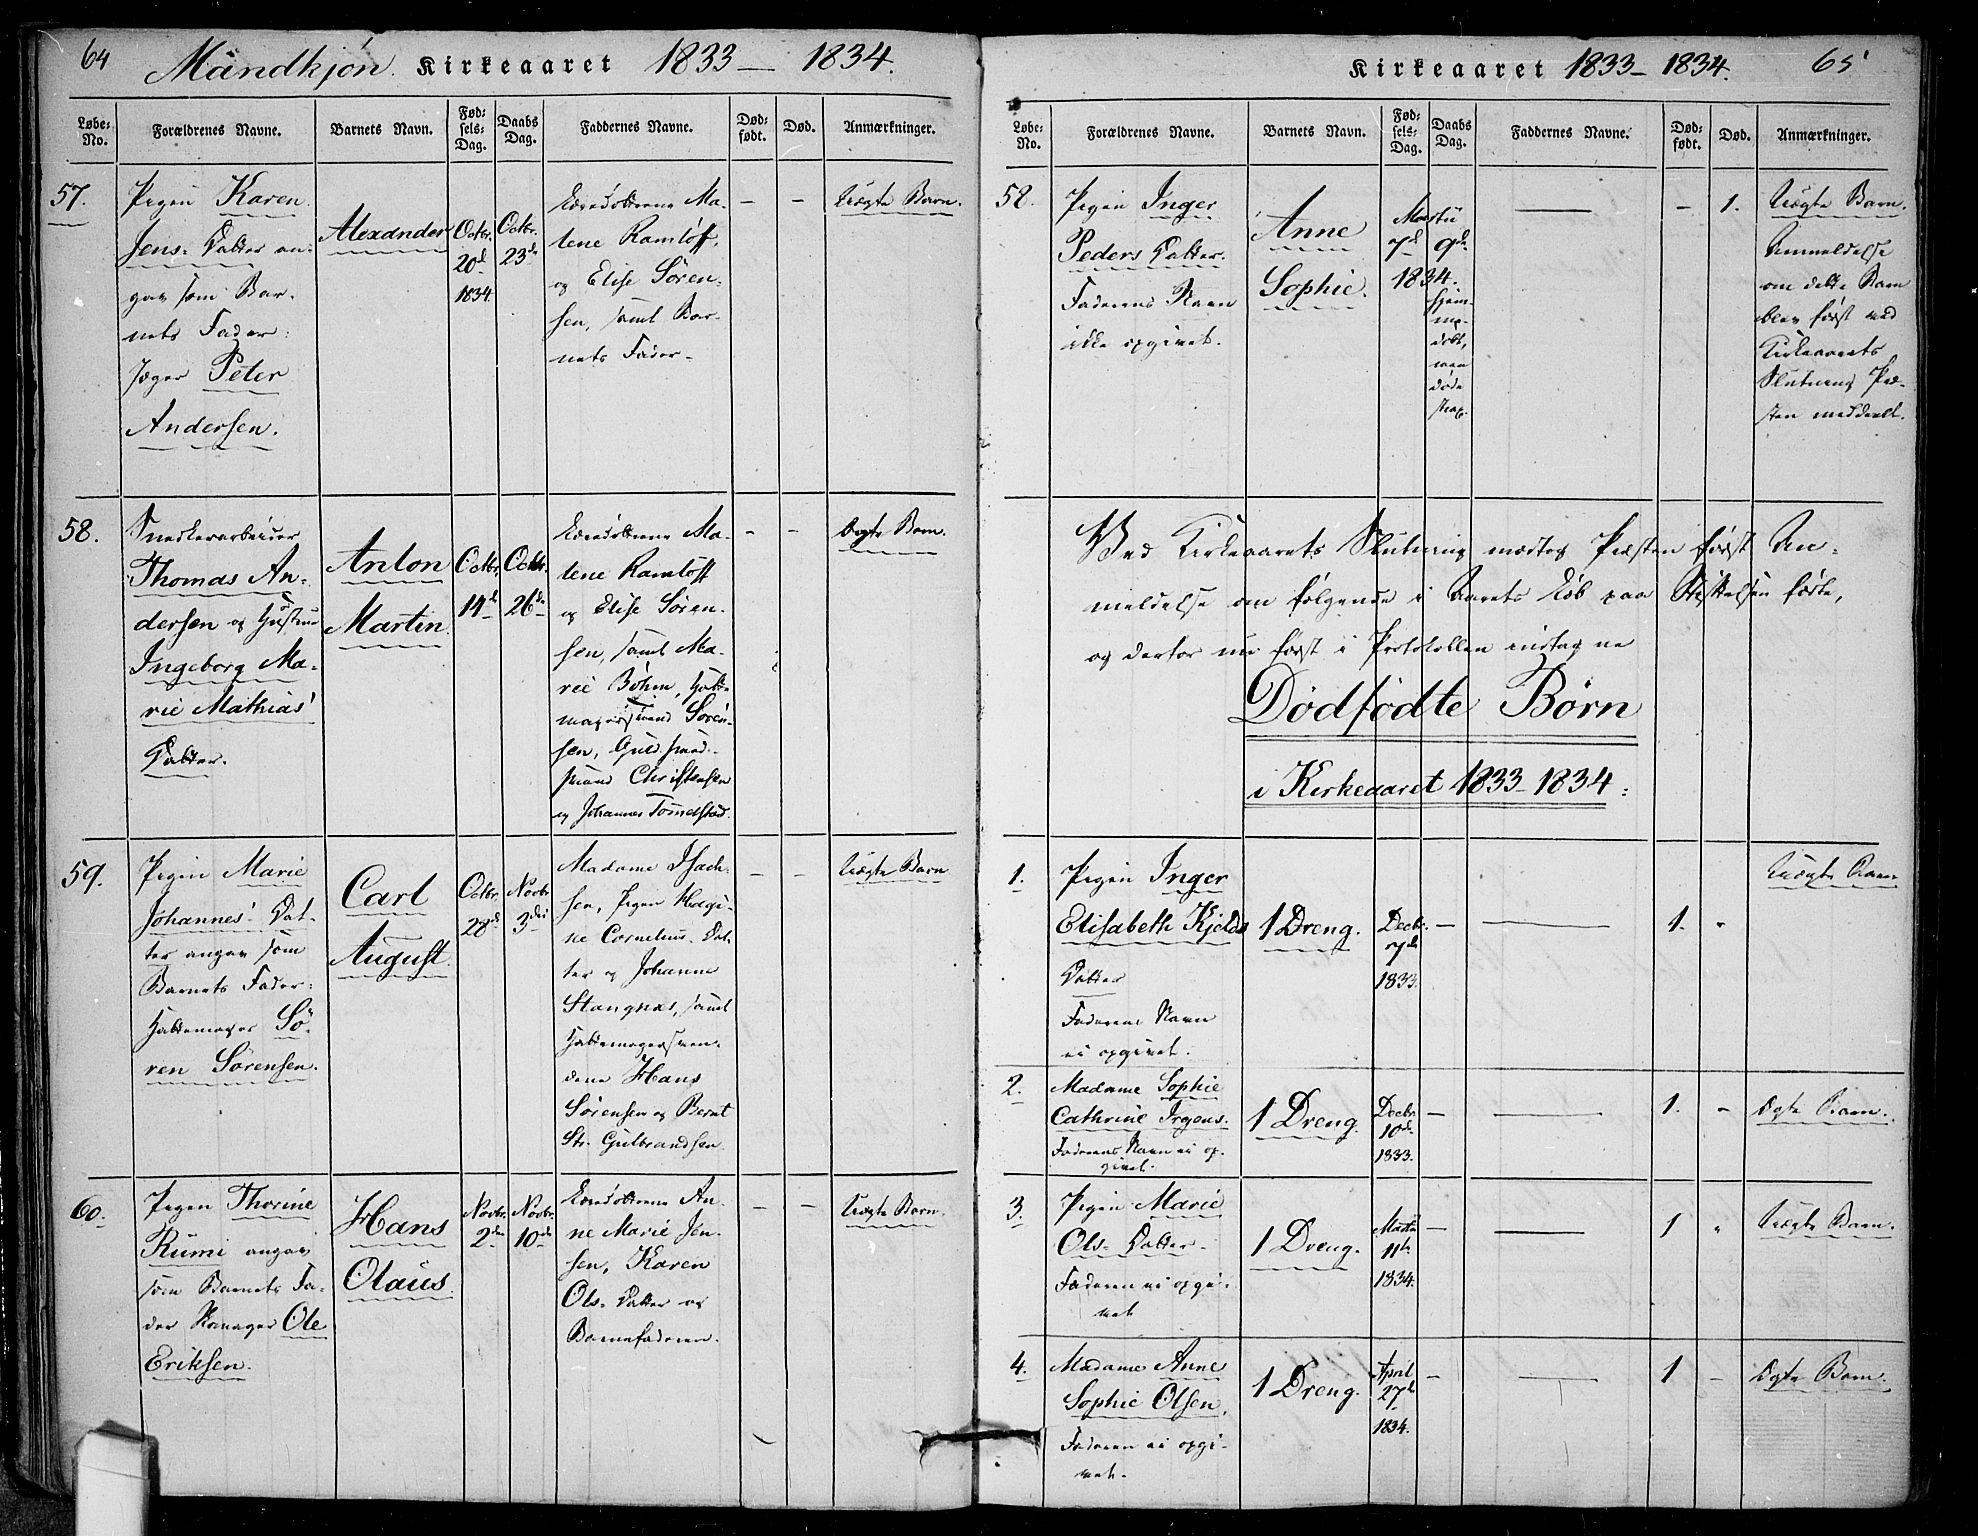 64 Mandkjön. Kirkeaaret 1833 — 1834.
Løbe-No. Forældrenes Navne. Barnets Navn. Fødsels-Dag. Daabs Dag. Faddernes Navne. Dødfødt. Død. Anmærkninger.
57.
Pigen Karen
Jens-Datter an-
gav som Bar-
nets Fader:
Jæger Peter
Andersen.
Alexander
Octbr. 20d 1834.
Octbr. 23de
Ma-
lene Ramlöff,
og Elise Sören-
sen, samt Bar-
nets Fader.
– –
Uægte Barn.
58.
Snedkerarbeider
Thomas An-
dersen og Hustrue
Ingeborg Ma-
rie Mathias'
Datter.
Anton
Martin.
Octbr. 14d
Octbr. 26de
Ma-
lene Ramlöff
og Elise Sören-
sen, samt Ma-
rie Böhm,
Sören-
sen, Guldsmed-
svend Christensen
og Johannes
– –
Ægte Barn.
59.
Pigen Marie
Johannes' Dat-
ter angav som
Barnets Fader:
Sö-
ren Sörensen.
Carl
August.
Octbr. 28d
Novbr. 3die
Madame Isach-
sen, Pigen
Cornelius-Dat-
ter og Johanne
Stangnæs, samt
dene Hans
Sörensen og Bernt
Gulbrandsen.
– –
Uægte Barn
60.
Pigen Thorine
Rumi angav
som Barnets Fa-
der Ole
Eriksen.
Hans
Olaus.
Novbr. 2den
Novbr. 10de
An-
ne Marie Jen-
sen, Karen
Ols-Datter og
Barnefaderen.
– –
Uægte Barn.
Kirkeaaret 1833– 1834. 65
Løbe-No. Forældrenes Navne. Barnets Navn. Fødsels-Dag. Daabs Dag. Faddernes Navne. Dødfødt. Død. Anmærkninger.
58.
Pigen Inger
Peders Datter.
Faderens Navn
ikke opgivet.
Anne
Sophie.
Martii
7d 9de
1834.
hjem-
me-
döbt,
men
döde
strax.
—
– 1.
Uægte Barn.
Anmeldelse
om dette Barn
blev först ved
Kirkeaarets
Slutning Præ-
sten meddeelt.
Ved Kirkeaarets Slutning modtog Præsten först An-
meldelse om fölgende i Aarets Löb paa Stiftelsen födte,
og derfor nu först i Protokollen indtagne
Dödfödte Börn
i Kirkeaaret 1833–1834:
1.
Pigen Inger
Elisabeth Kjelds
Datter
Faderens Navn
ei opgivet.
1 Dreng.
Decbr.
7de
1833.
—
1.
Uægte Barn
2.
Madame Sophie
Cathrine Irgens.
Faderens Navn ei op-
givet.
1 Dreng.
Decbr.
10de
1833.
—
1. –
Ægte Barn.
3.
Pigen Marie
Ols-Datter.
Faderen ei opgi-
vet
1 Dreng.
Martii
11te
1834.
—
1
Uægte Barn.
4.
Madame Anne
Sophie Olsen.
Faderen ei opgi-
vet.
1 Dreng.
April
27de
1834.
—
1 –
Ægte Barn.